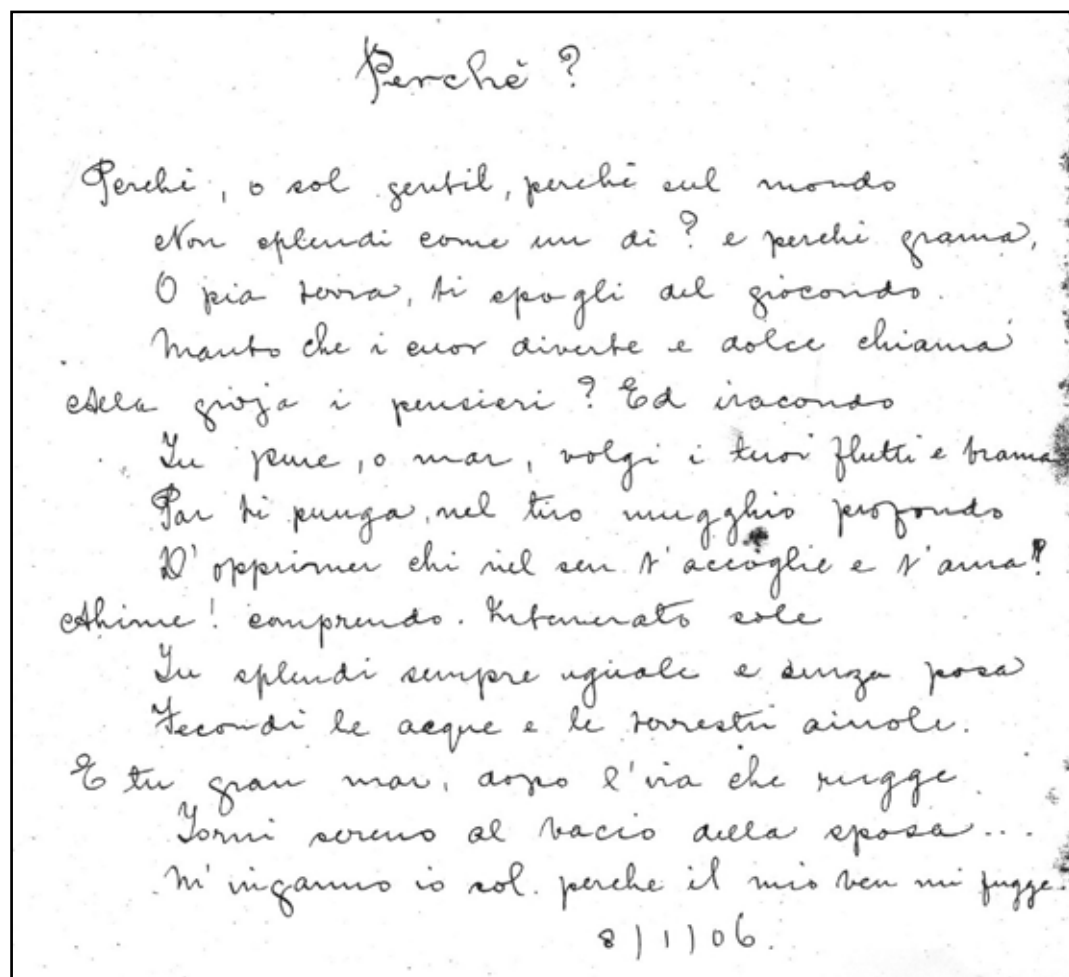 Perchè ?
Perchè, o sol gentil, perchè sul mondo
Non splendi come un di ? e perchè grama,
O pia terra, ti spogli del giocondo
Manto che i cuor diverte e dolce chiama
Alla gioja i pensieri ? Ed iracondo
Tu pure, o mar, volgi i tuoi flutti e brama
Par ti punga, nel tuo mugghio profondo
D'opprimer chi nel sen t'accoglie e t'ama?
Ahime ! comprendo. Intemerato sole
Tu splendi sempre uguale e senza posa
Fecondi le acque e le terrestri aiuole.
E tu gran mar, dopo l'ira che rugge
Torni sereno al bacio della sposa...
M'inganno io sol. perche il mio ben mi fugge.
8/1/06.